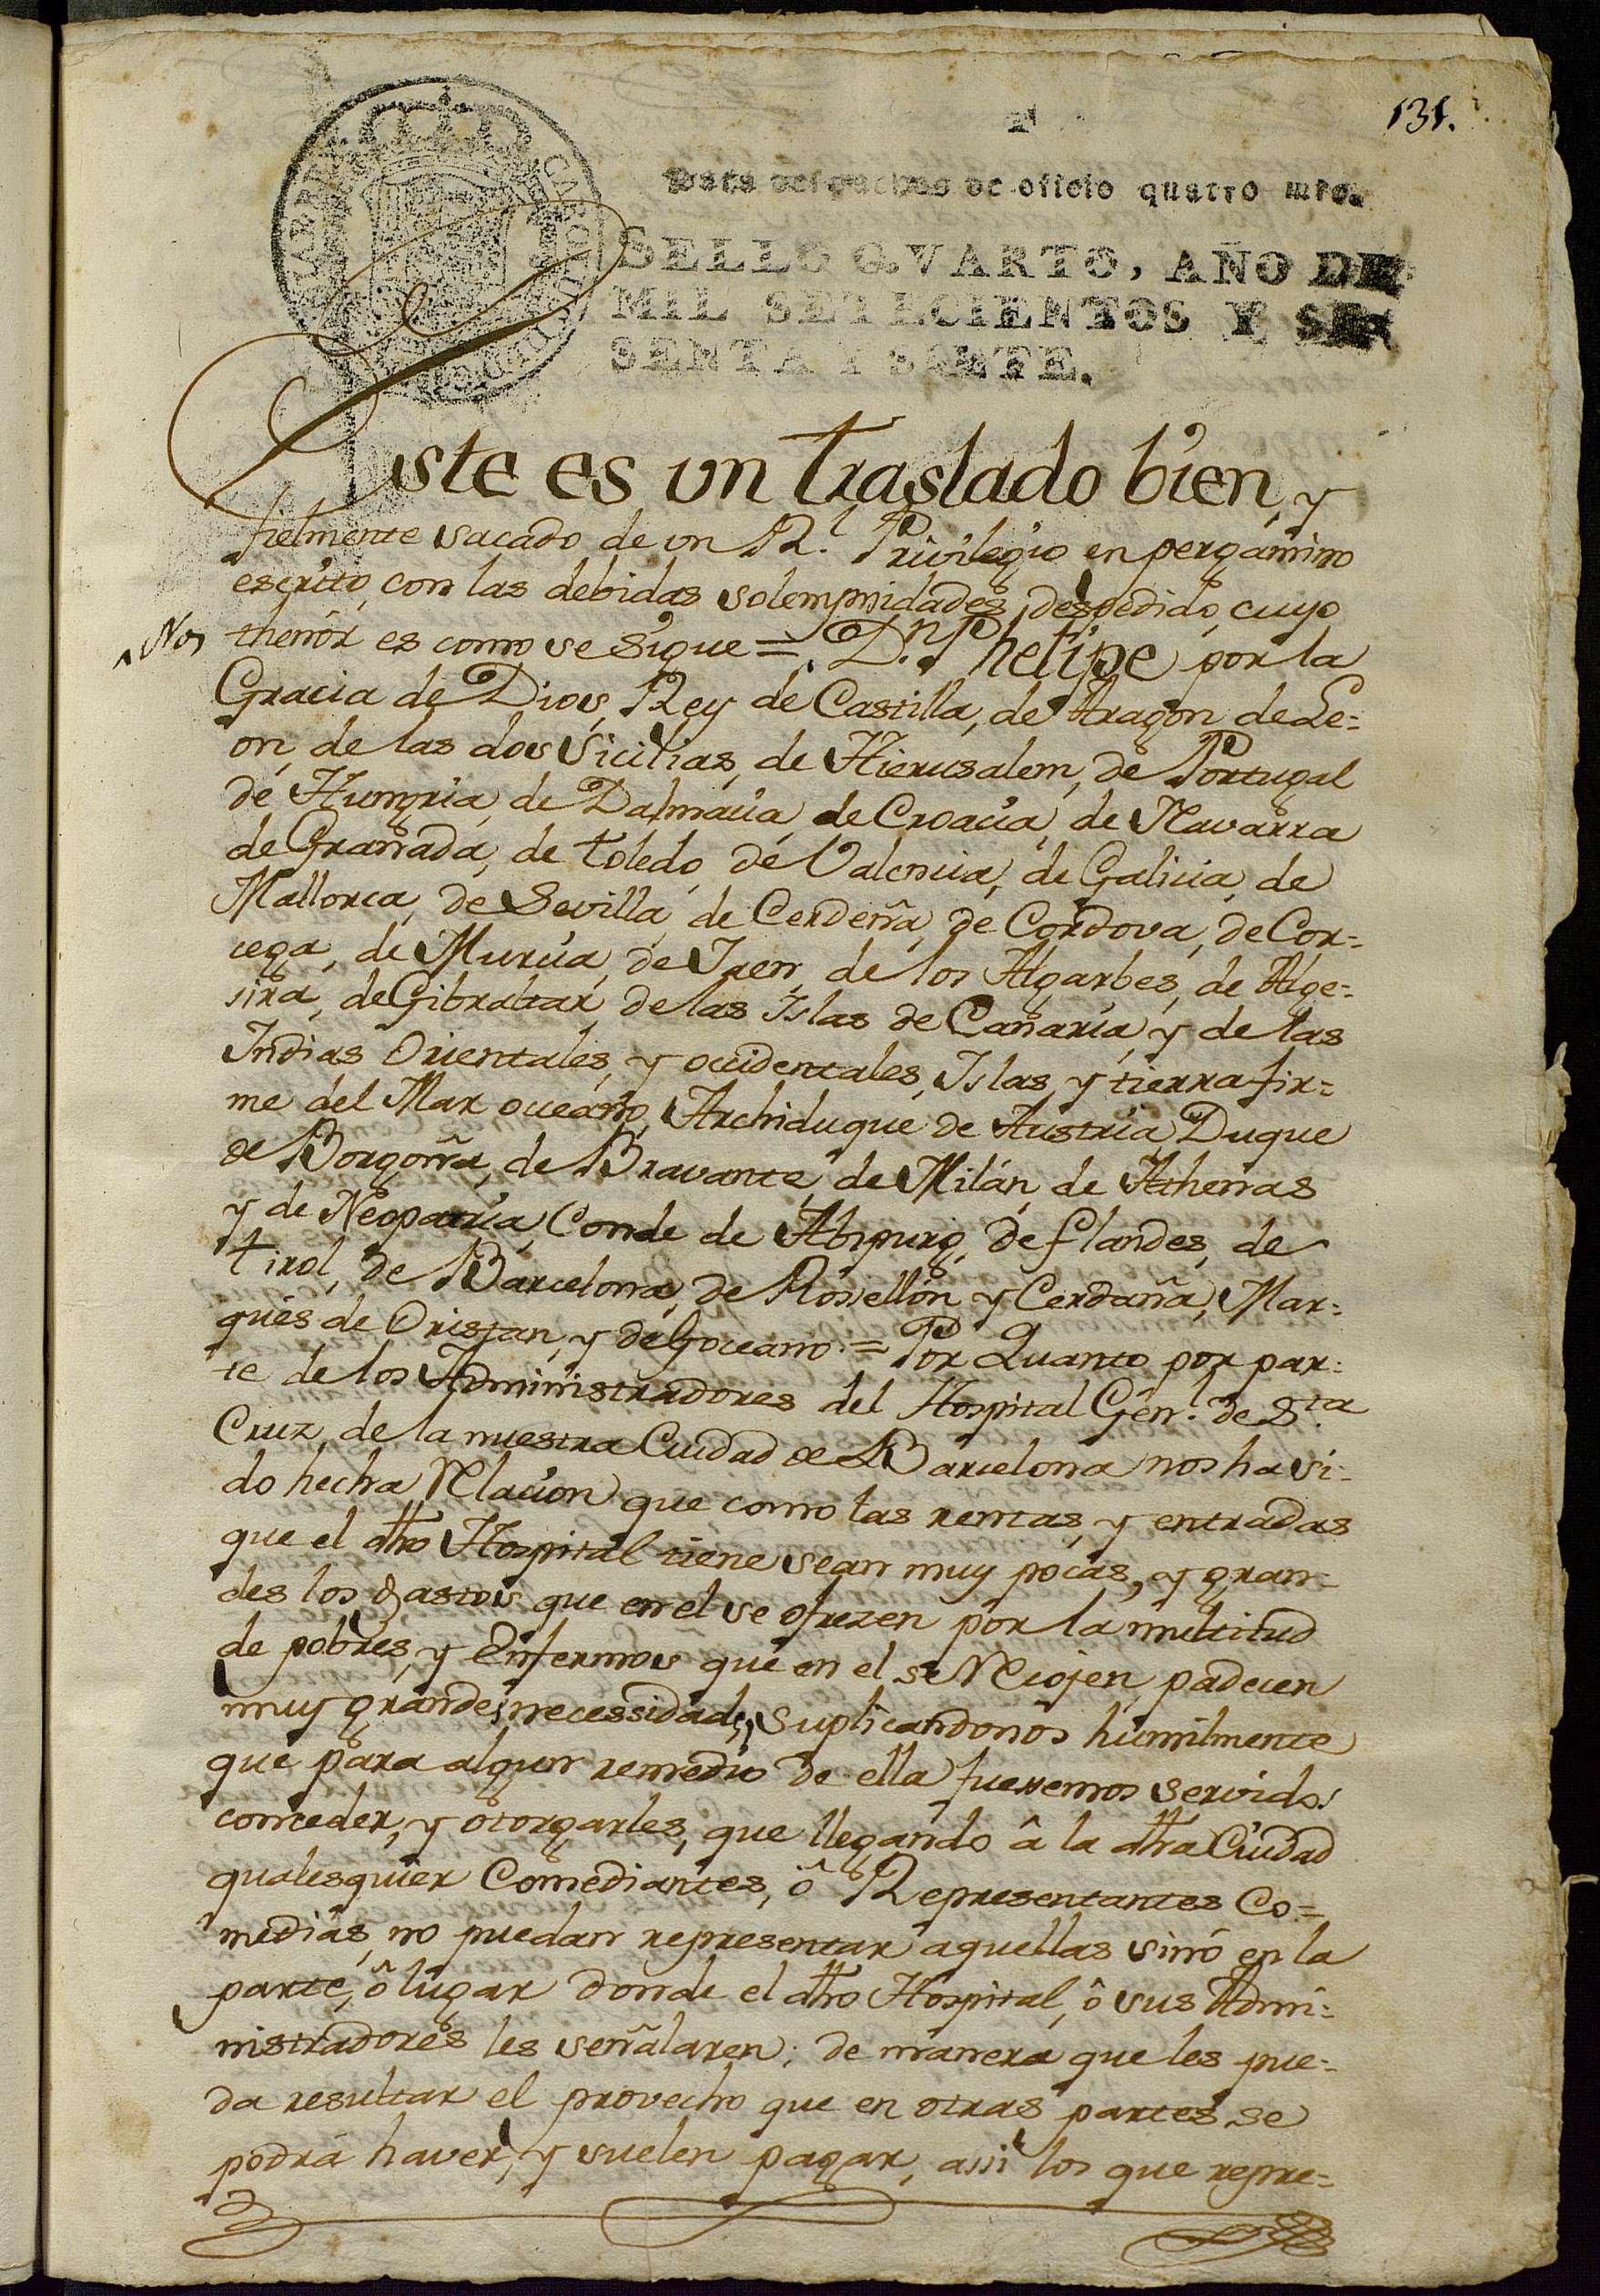 131.
Para despachos de oficio quatro mrs.
SELLO QVARTO, AÑO DE
MIL SETECIENTOS Y SE
SENTA Y SIETE.
Este es un traslado bien, y
fielmente sacado de un R.l Privilegio en pergamino
escrito, con las debidas solempnidades, despedido, cuyo
Nos
thenór es como se sigue = D.n Phelipe por la
Gracia de Dios, Rey de Castilla, de Aragon, de Le=
on, de las dos Sicilias, de Hierusalem, de Portugal
de Hungria, de Dalmacia, de Croacia, de Navarra
de Granada, de Toledo, de Valencia, de Galicia, de
Mallorca, de Sevilla, de Cerdeña, de Cordova, de Cor=
cega, de Murcia, de Jaen, de los Algarbes, de Alge=
sira, de Gibraltar, de las Islas de Canaria, y de las
Indias Orientales, y occidentales, Islas, y tierra fir=
me del Mar occeano, Archiduque de Austria, Duque
de Borgoña, de Bravante, de Milán, de Athenas
y de Neopatria, Conde de Abspurg, de flandes, de
tirol, de Barcelona, de Rossellón y Cerdaña, Mar=
qués de Oristan, y de Goceano = Por Quanto por par=
te de los Administradores del Hospital Gen.l de S.ta
Cruz de la nuestra Ciudad de Barcelona nos ha si=
do hecha Relacion que como las rentas, y entradas
que el dho Hospital tiene sean muy pocas, y gran=
des los gastos que en el se ofrezen por la multitud
de pobres, y Enfermos que en el se Recojen, padecen
muy grandes necessidades, suplicandonos humilmente
que para algun remedio de ella fuessemos servidos
conceder, y otorgarles, que llegando â la dha Ciudad
qualesquier Comediantes, ô Representantes Co=
medias, no puedan representar aquellas sinó en la
parte, ô lugar donde el dho Hospital, ô sus Admi=
nistradores les señalaren; de manera que les pue=
da resultar el provecho que en otras partes se
podrá haver, y suelen pagar, assi los que repre=